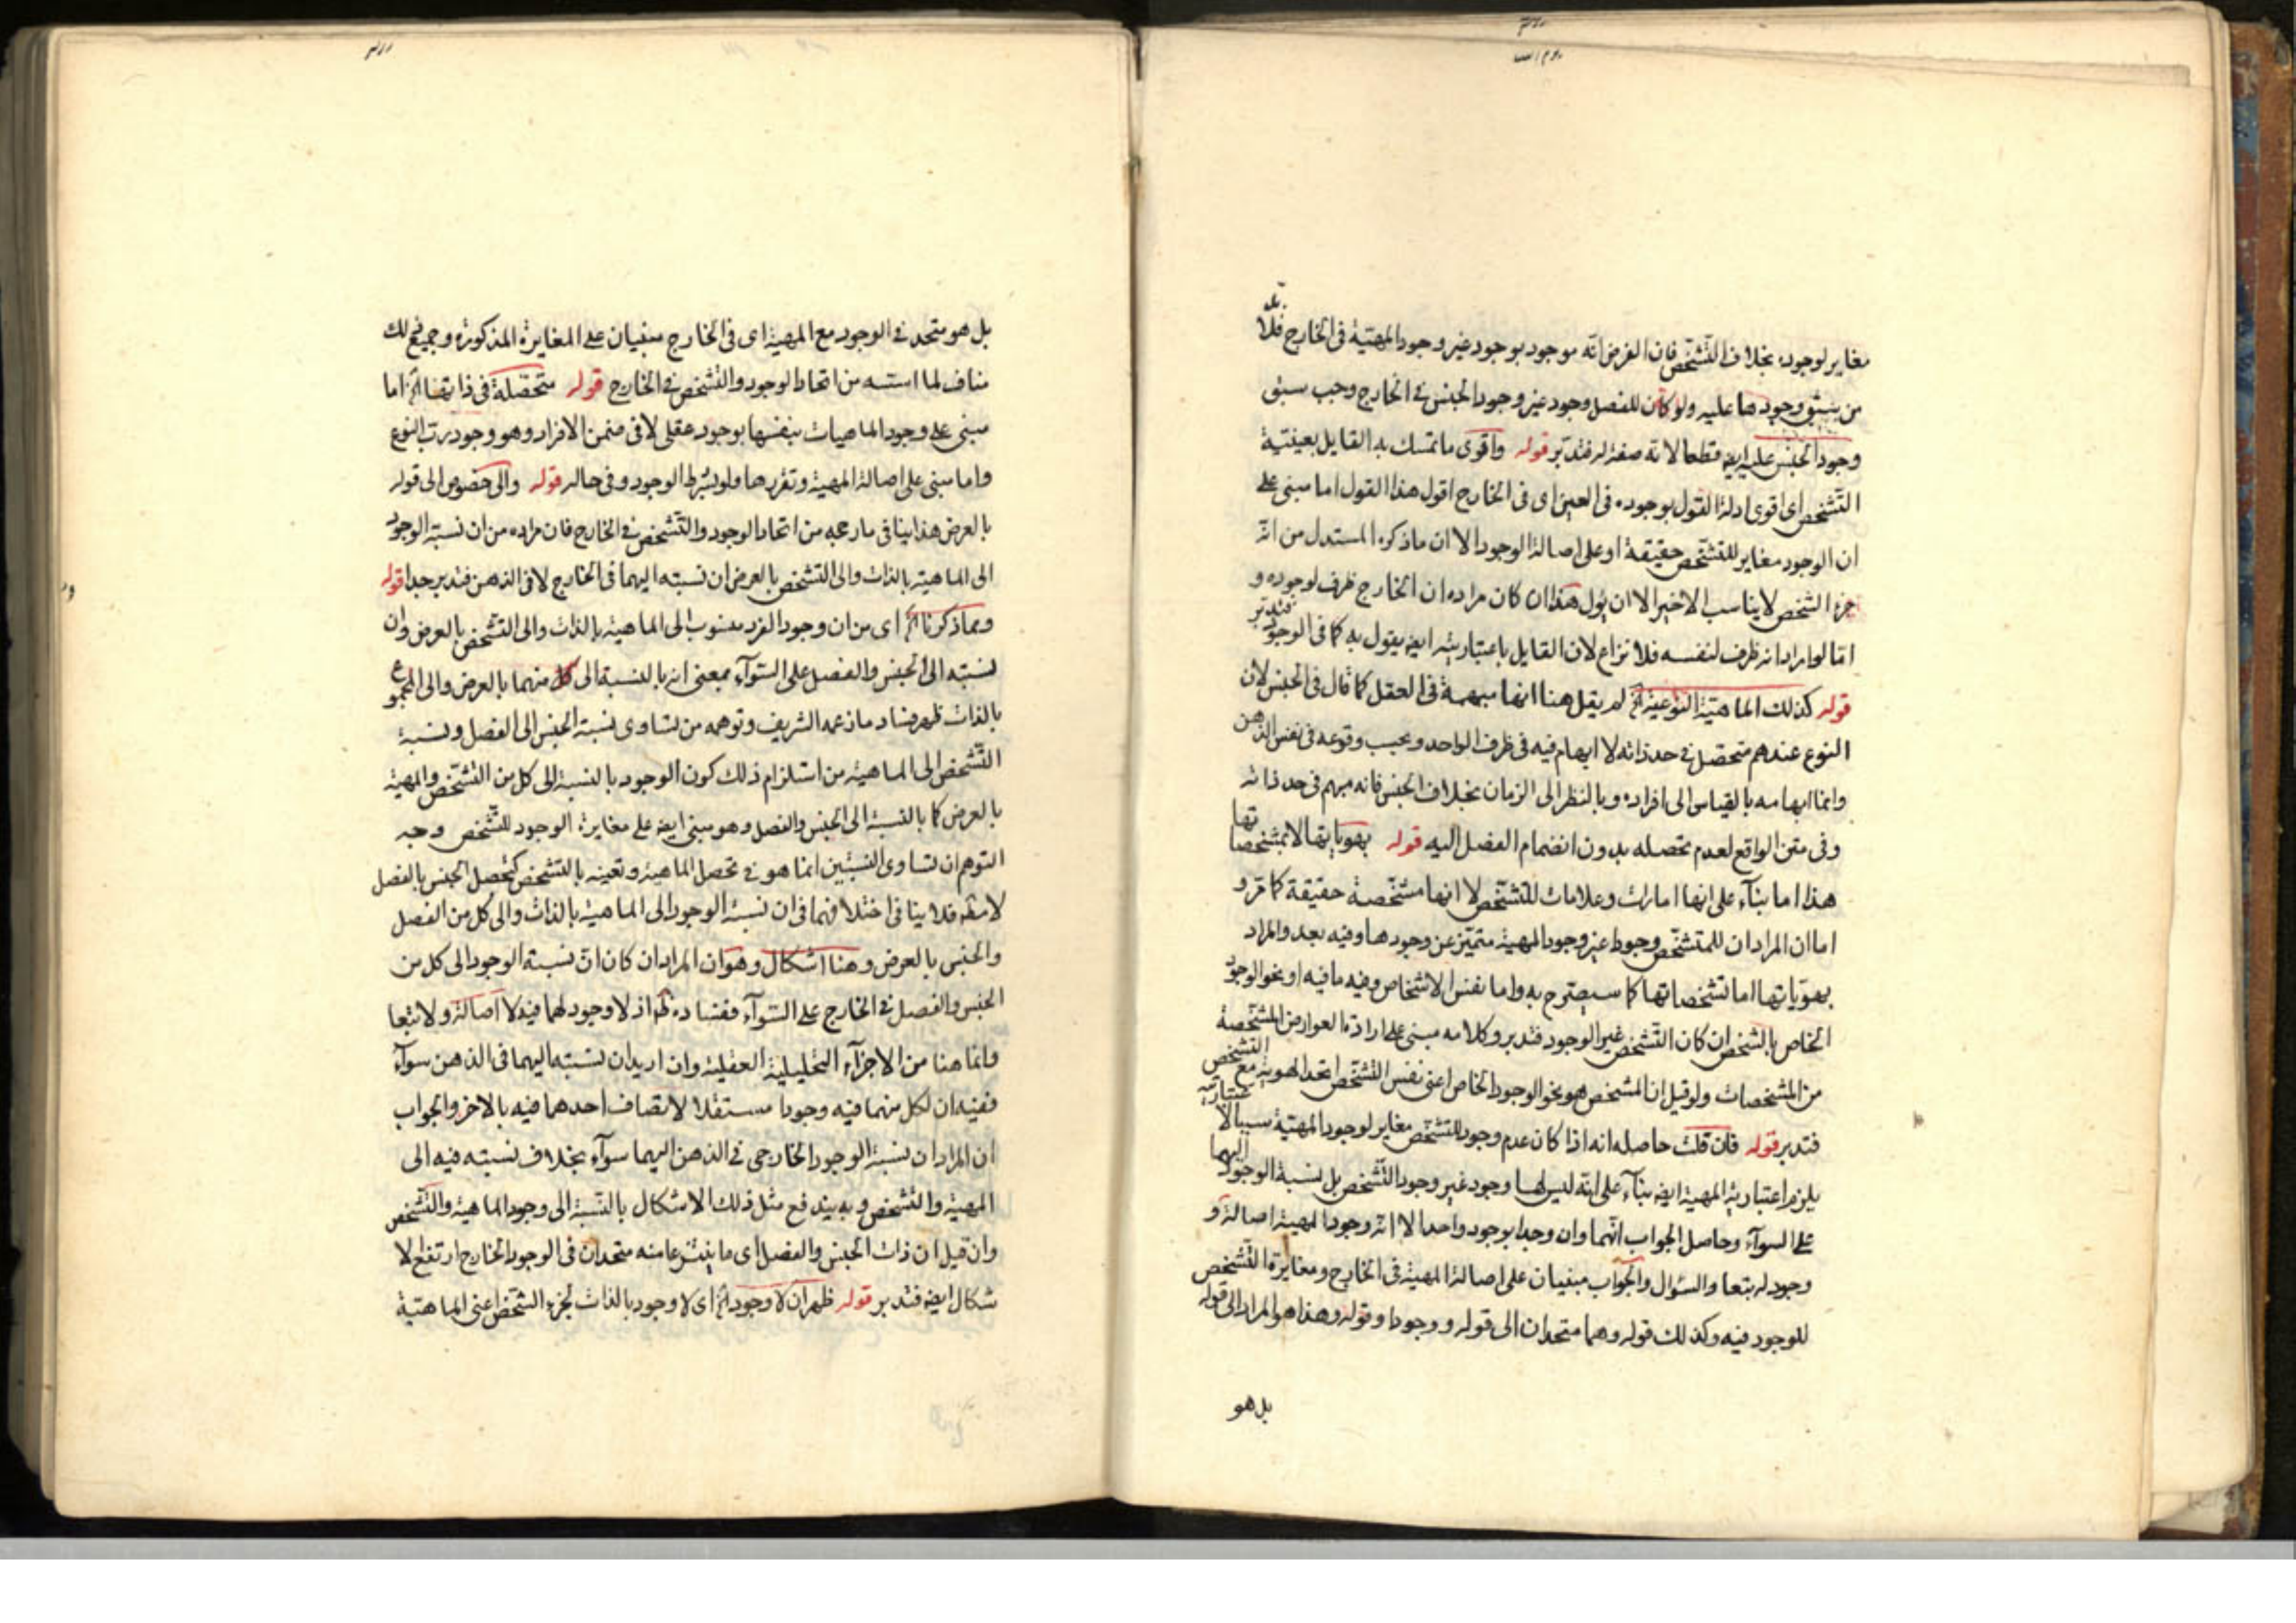 مغاير لوجوده بخلاف التشخص فان الغرض انه موجود بوجود غير وجود المهية فى الخارج فلا بد
من سبق وجودها عليه ولو كان للفصل وجود غير وجود الجنس فى الخارج وجب سبق
وجود الجنس عليه ايضه قطعا لانه صفة له فتدبر قوله واقوى ما تمسك به القايل بعينية
التشخص اى اقوى ادلة القول بوجوده فى العين اى فى الخارج اقول هذا القول اما مبنى على
ان الوجود مغاير للتشخص حقيقة او على اصالة الوجود الا ان ماذكره المستدل من انه
جزء الشخص لا يناسب الاخير الا ان يؤل هذا ان كان مراده ان الخارج ظرف لوجوده و
اما لو اراد انه ظرف لنفسه فلا نزاع لان القايل باعتباريته ايضه يقول به كما فى الوجود فتدبر
قوله كذلك الماهية النوعية الخ لم يقل هنا انها مبهمة فى العقل كما قال فى الجنس لان
النوع عندهم متحصل فى حد ذاته لا ابهام فيه فى ظرف الواحد وبحسب وقوعه فى نفس الذهن
وانما ابهامه بالقياس الى افراده وبالنظر الى الزمان بخلاف الجنس فانه مبهم فى حد ذاته
وفى متن الواقع لعدم تحصله بدون انضمام الفصل اليه قوله بهوياتها لا بمشخصاتها
هذا اما بناء على انها امارات وعلامات للتشخص لا انها مشخصة حقيقة كما مر و
اما ان المراد ان للمتشخص وجودا غير وجود المهية متميز عن وجودها وفيه بعد والمراد
بهوياتها اما تشخصاتها كما سيصرح به واما نفس الاشخاص وفيه ما فيه او نحو الوجود
الخاص بالشخص ان كان التشخص غير الوجود فتدبر وكلامه مبنى على ارادة العوارض المشخصة
من المشخصات ولو قيل ان المشخص هو نحو الوجود الخاص اعنى نفس التشخص اتحد الهوية مع التشخص
فتدبر قوله فان قلت حاصله انه اذا كان عدم وجود للتشخص مغاير لوجود المهية سببا لاعتباريته
يلزم اعتبارية المهية ايضه بناء على انه ليس لها وجود غير وجود التشخص بل نسبة الوجود اليهما
على السواء وحاصل الجواب انهما وان وجدا بوجود واحد الا انه وجود المهية اصالة و
وجود له بتعا والسؤال والجواب مبنيان على اصالة المهية فى الخارج ومغايرة التشخص
للوجود فيه وكذلك قوله وهما متحدان الى قوله ووجودا وقوله وهذا هو المراد الى قوله
بل هو
بل هو متحد فى الوجود مع المهية اى فى الخارج مبنيان على المغايرة المذكورة وجميع ذلك
مناف لما اسسه من اتحاد الوجود والتشخص فى الخارج قوله متحصلة فى ذاتها الخ اما
مبنى على وجود الماهيات بنفسها بوجود عقلى لا فى ضمن الافراد وهو وجود رب النوع
واما مبنى على اصالة المهية وتقررها ولو بشرط الوجود وفى حاله قوله والى خصوص الى قوله
بالعرض هذا ينافى ما رجحه من اتحاد الوجود والتشخص فى الخارج فان مراده من ان نسبة الوجود
الى الماهية بالذات والى التشخص بالعرض ان نسبته اليهما فى الخارج لا فى الذهن فتدبر جدا قوله
ومما ذكرنا الخ اى من ان وجود الفرد منسوب الى الماهية بالذات والى التشخص بالعرض وان
نسبته الى الجنس والفصل على السواء بمعنى انه بالنسبة الى كل منهما بالعرض والى المجموع
بالذات ظهر فساد ما زعمه الشريف وتوهمه من تساوى نسبة الجنس الى الفصل ونسبة
التشخص الى الماهية من استلزام ذلك كون الوجود بالنسبة الى كل من التشخص والمهية
بالعرض كما بالنسبة الى الجنس والفصل وهو مبنى ايضه على مغايرة الوجود للتشخص وجه
التوهم ان تساوى النسبتين انما هو فى تحصل الماهية وتعينه بالتشخص كتحصل الجنس بالفصل
لا مطه فلا ينافى اختلافهما فى ان نسبة الوجود الى الماهية بالذات والى كل من الفصل
والجنس بالعرض وهنا اشكال وهو ان المراد ان كان ان نسبة الوجود الى كل من
الجنس والفصل فى الخارج على السواء ففساده ظه اذ لا وجود لهما فيه لا اصالة ولا تبعا
وانما هنا من الاجزاء التحليلية العقلية وان اريد ان نسبته اليهما فى الذهن سواء
ففيه ان لكل منهما فيه وجودا مستقلا لاتصاف احدهما فيه بالاخر والجواب
ان المراد ان نسبة الوجود الخارجى فى الذهن اليهما سواء بخلاف نسبته فيه الى
المهية والتشخص وبه يندفع مثل ذلك الاشكال بالنسبة الى وجود الماهية والتشخص
وان قيل ان ذات الجنس والفصل اى ما ينتزعا منه متحدان فى الوجود الخارج ارتفع الا
شكال ايضه فتدبر قوله ظهر ان لا وجود الخ اى لا وجود بالذات لجزء الشخص اعنى الماهية